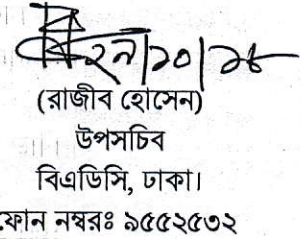 ২৯/১০/১৮
(রাজীব হোসেন)
উপসচিব
বিএডিসি, ঢাকা।
ফোন নম্বরঃ ৯৫৫২৫৩২